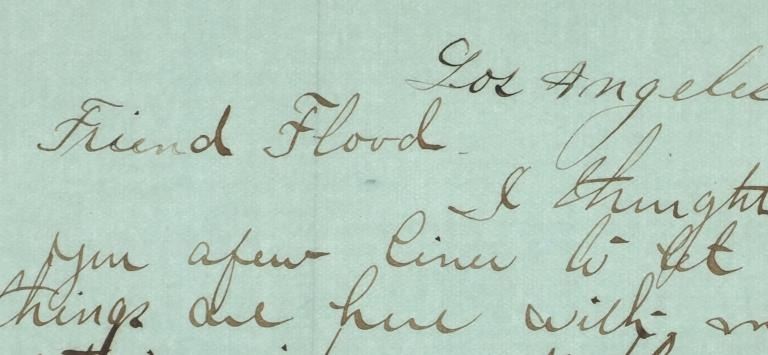 Los Angeles
Friend Flood
I thought
you afew lines to let
things are here with